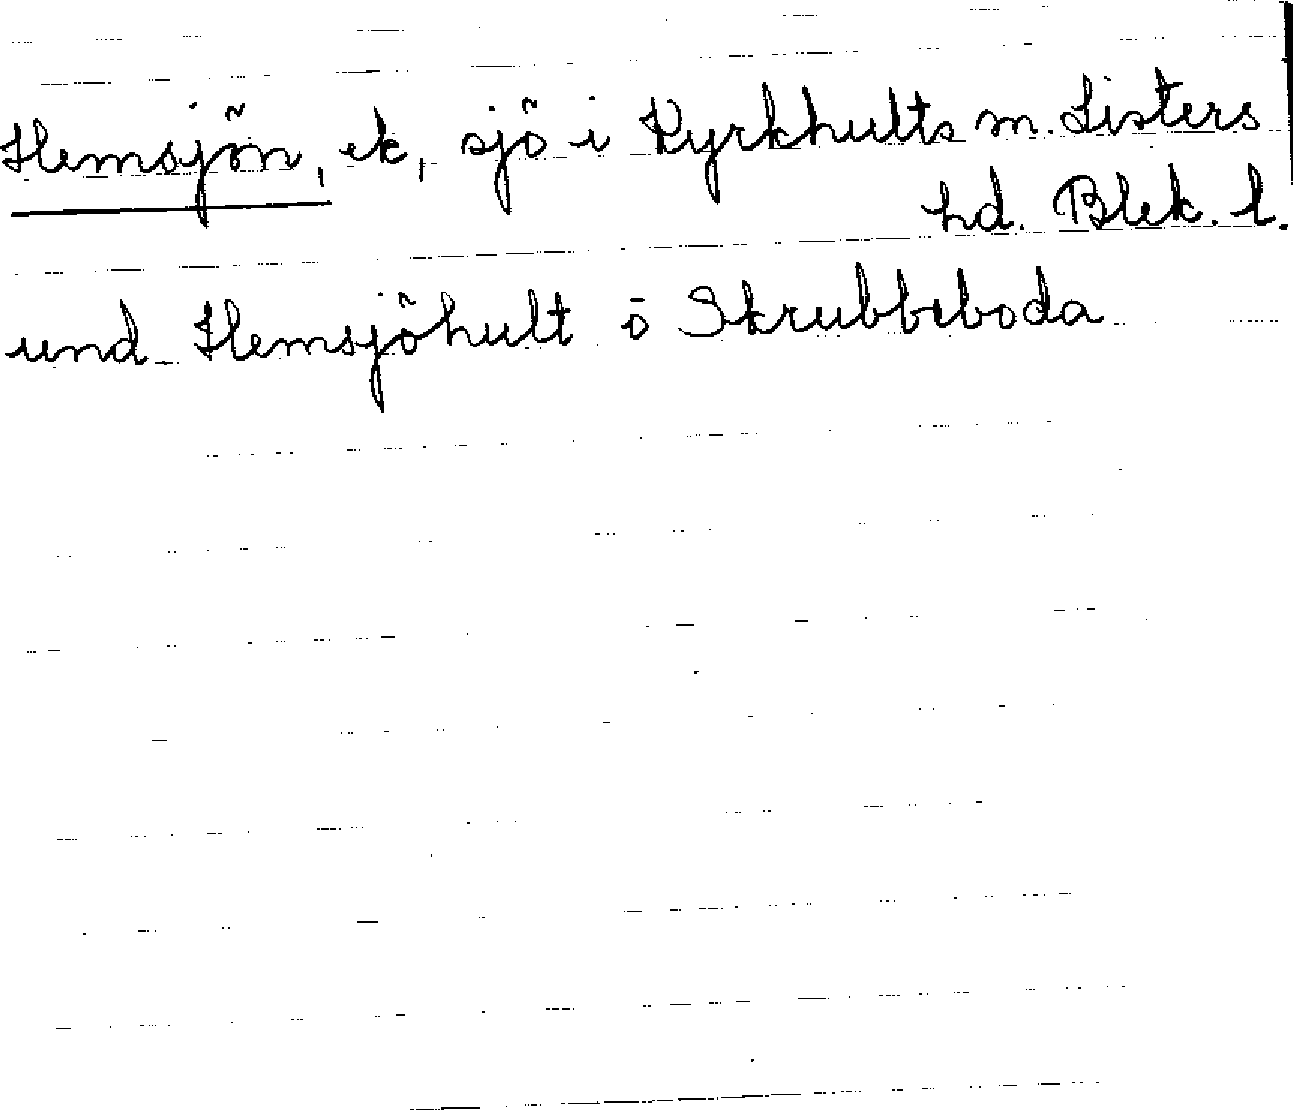 Hemsjön, ek, sjö i Kyrkhults m. Listers
hd. Blek. l.
und Hemsjöhult o Skrubbeboda